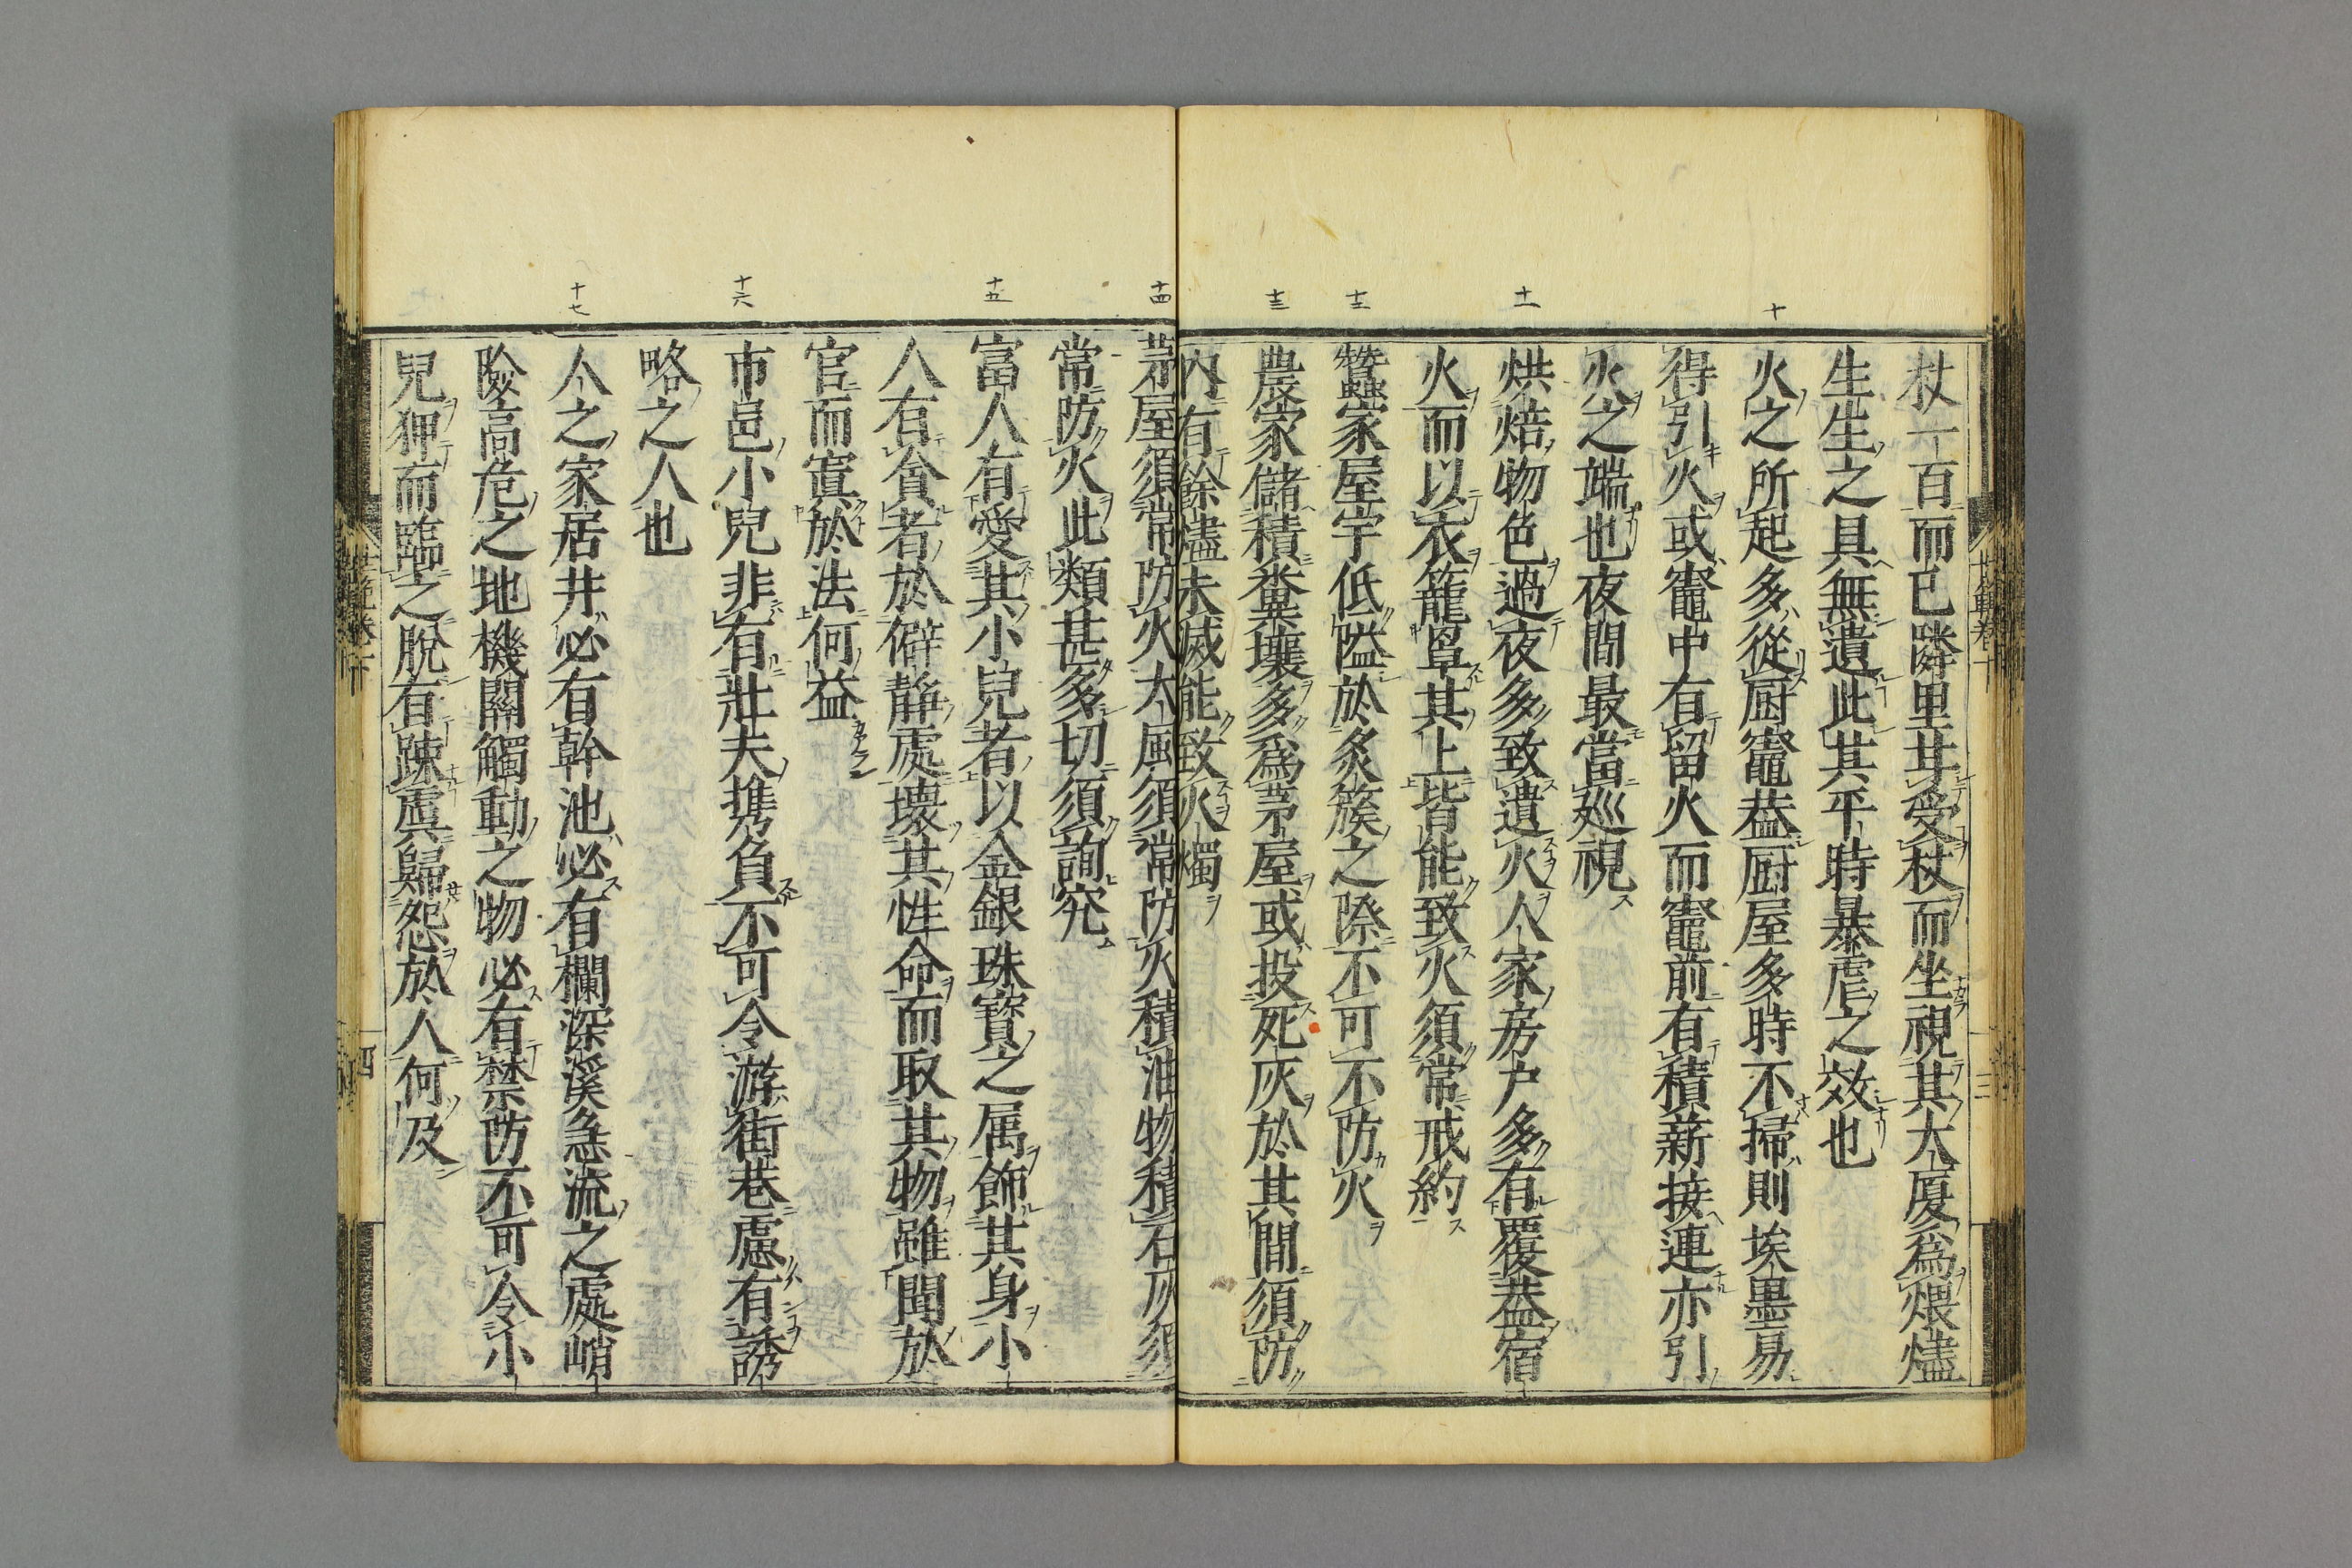 十
十一
十二
十三
杖一百而已隣里其受杖而坐視其大厦爲煨燼
生生之具無遺此其平時暴虐之效也
火之所起多從厨竈葢厨屋多時不掃則埃墨易
得引火或竈中有留火而竈前有積薪接連亦引
火之端也夜間最當廵視
烘焙物色過夜多致遺火人家房戸多有覆葢宿
火而以衣籠罩其上皆能致火須常戒約
蠶家屋宇低隘於炙簇之際不可不防火
農家儲積糞壤多爲茅屋或投死灰於其間須防
内有餘燼未滅能致火燭
世範卷下
三
十四
十五
十六
十七
茅屋須常防火大風須常防火積油物積石灰須
常防火此類甚多切須詢究
富人有愛其小兒者以金銀珠寶之属飾其身小
人有貪者於僻静處壊其性命而取其物雖聞於
官而寘於法何益
市邑小兒非有壯夫携負不可令游街巷慮有誘
略之人也
人之家居井必有幹池必有欄深溪急流之處峭
險高危之地機關觸動之物必有禁防不可令小
兒狎而臨之脱有踈虞歸怨於人何及
世範卷下
四